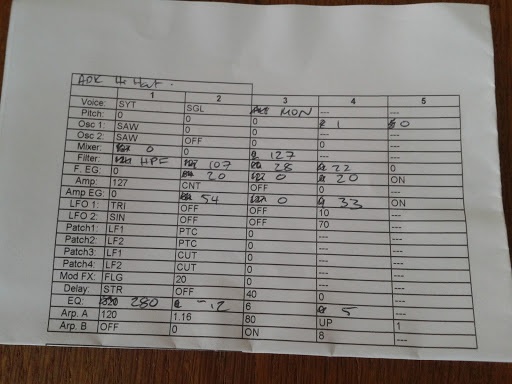 ADK Hi Hat.
1 2 3 4 5
Voice: SYT SGL MON --- ---
Pitch: 0 0 0 1 0
Osc 1: SAW 0 0 --- ---
Osc 2: SAW OFF 0 --- ---
Mixer: 0 0 127 --- ---
Filter: HPF 107 28 22 0
F. EG: 0 20 0 20 ON
Amp: 127 CNT OFF 0 ---
Amp EG: 0 54 0 33 ON
LFO 1: TRI OFF OFF 10 ---
LFO 2: SIN OFF OFF 70 ---
Patch1: LF1 PTC 0 --- ---
Patch2: LF2 PTC 0 --- ---
Patch3: LF1 CUT 0 --- ---
Patch4: LF2 CUT 0 --- ---
Mod FX: FLG 20 0 --- ---
Delay: STR OFF 40 0 ---
EQ: 280 -12 6 5 ---
Arp. A 120 1.16 80 UP 1
Arp. B OFF 0 ON 8 ---